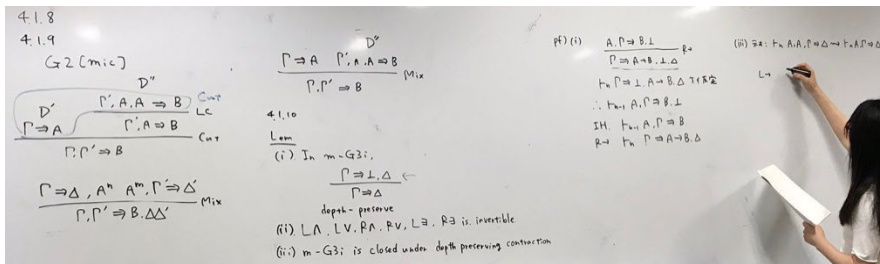 4.1.8
4.1.9
G2[mic]
D''
D' Γ', A, A ⇒ B Cut
LC
Γ ⇒ A Γ', A ⇒ B
Cut
Γ, Γ' ⇒ B
Γ ⇒ Δ, Aⁿ Aᵐ, Γ' ⇒ Δ'
Mix
Γ, Γ' ⇒ B, ΔΔ'
D''
Γ ⇒ A Γ', A, A ⇒ B
Mix
Γ, Γ' ⇒ B
4.1.10
Lem
(i) In m-G3i,
Γ ⇒ ⊥, Δ ←
Γ ⇒ Δ
depth-preserve
(ii) L∧, L∨, R∧, R∨, L∃, R∃ is invertible
(iii) m-G3i is closed under depth preserving contraction
pf) (i)
A, Γ ⇒ B, ⊥
R→
Γ ⇒ A→B, ⊥, Δ
⊢ₙ Γ ⇒ ⊥, A→B, Δ
∴ ⊢ₙ₋₁ A, Γ ⇒ B, ⊥
IH. ⊢ₙ₋₁ A, Γ ⇒ B
R→ ⊢ₙ Γ ⇒ A→B, Δ
(iii) ⊢ₙ A, A, Γ ⇒ Δ ⊢ₙ A, Γ ⇒ Δ
L→